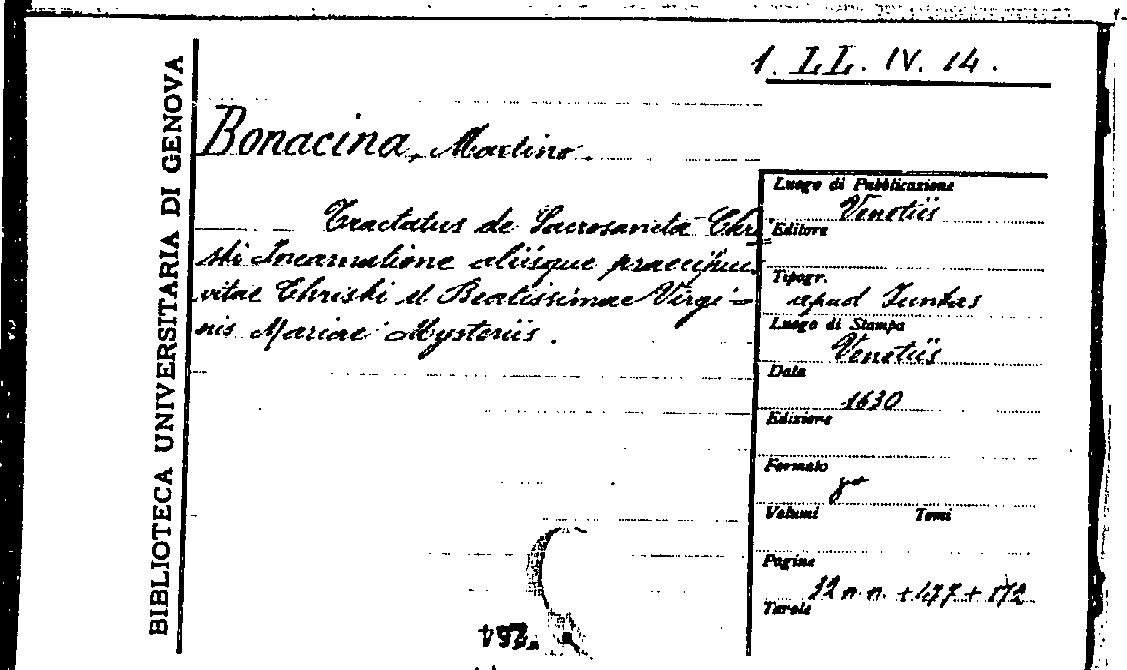 1. LL. IV. 14.
BIBLIOTECA UNIVERSITARIA DI GENOVA
Bonacina, Martino.
Tractatus de Sacrosancta Chri=
sti Incarnatione aliisque praecipuis
vitae Christi et Beatissimae Virgi=
nis Mariae Mysteriis.
Luogo di Pubblicazione
Venetiis
Editore
Tipogr.
apud Juntas
Luogo di Stampa
Venetiis
Data
1630
Edizione
Formato
Volumi Tomi
Pagine
12 n. n. + 477 + 172
Tavole